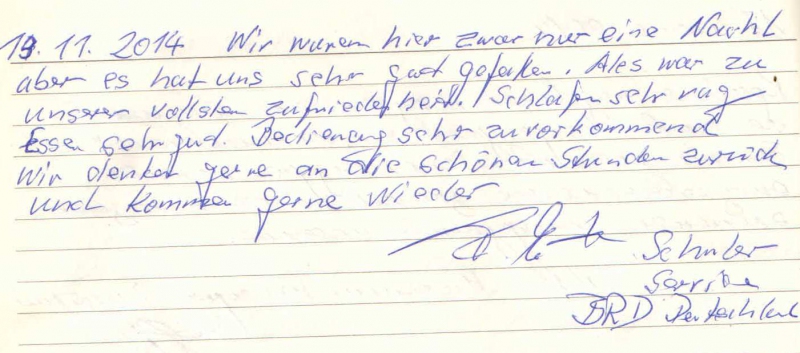 13. 11. 2014 Wir waren hier zwar nur eine Nacht
aber es hat uns sehr gut gefallen. Ales war zu
unserer vollsten zufriedenheit. Schlafen sehr
Essen sehr gut. Bedienung sehr zuvorkommend
Wir denken gerne an die schönen Stunden zurück
und kommen gerne wieder
Schuler
BRD Deutschland